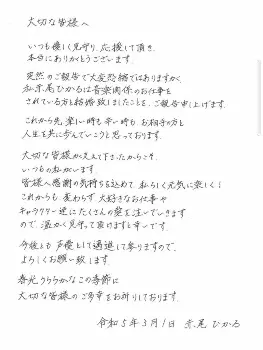 大切な皆様へ
いつも優しく見守り、応援して頂き、
本当にありがとうございます。
突然のご報告で大変恐縮ではありますが、
私赤尾ひかるは音楽関係のお仕事を
されている方と結婚致しましたことを、ご報告申し上げます。
これから先、楽しい時も辛い時も、お相手の方と
人生を共に歩んでいこうと思っております。
大切な皆様が支えて下さったからこそ、
いつもの私がいます
皆様へ感謝の気持ちを込めて、私らしく元気に楽しく!
これからも変わらず、大好きなお仕事や
キャラクター達にたくさんの愛を注いでいきます
ので、温かく見守って頂けますと幸いです。
今後とも声優として邁進して参りますので、
よろしくお願い致します
春光うららかなこの季節に
大切な皆様のご多幸をお祈りしております。
令和5年3月1日 赤尾ひかる